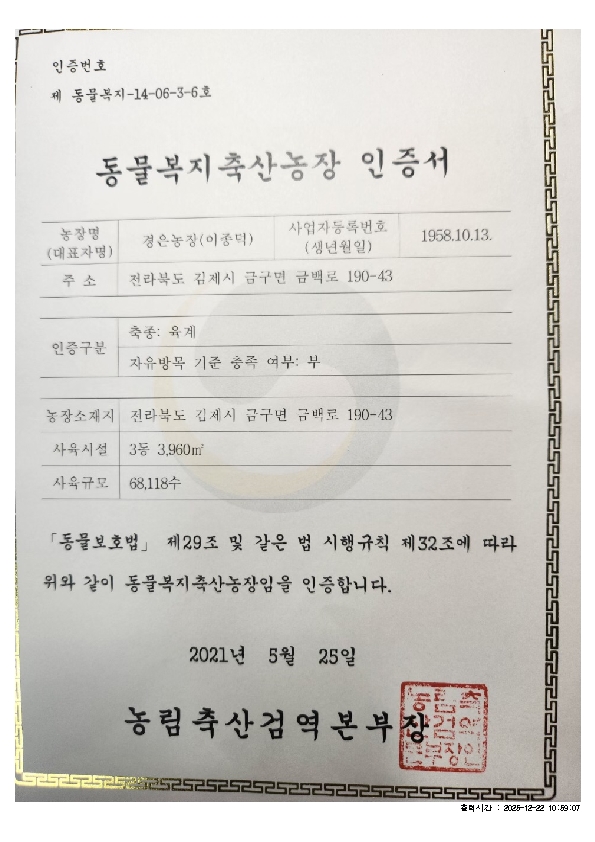 인증번호
제 동물복지-14-06-3-6호
동물복지축산농장 인증서
농장명
(대표자명)
경은농장(이종덕)
사업자등록번호
(생년월일)
1958.10.13.
주 소
전라북도 김제시 금구면 금백로 190-43
인증구분
축종: 육계
자유방목 기준 충족 여부: 부
농장소재지
전라북도 김제시 금구면 금백로 190-43
사육시설
3동 3,960㎡
사육규모
68,118수
「동물보호법」 제29조 및 같은 법 시행규칙 제32조에 따라
위와 같이 동물복지축산농장임을 인증합니다.
2021년 5월 25일
농림축산검역본부장
농림축
산검역
본부장인
출력시간 : 2025-12-22 10:59:07